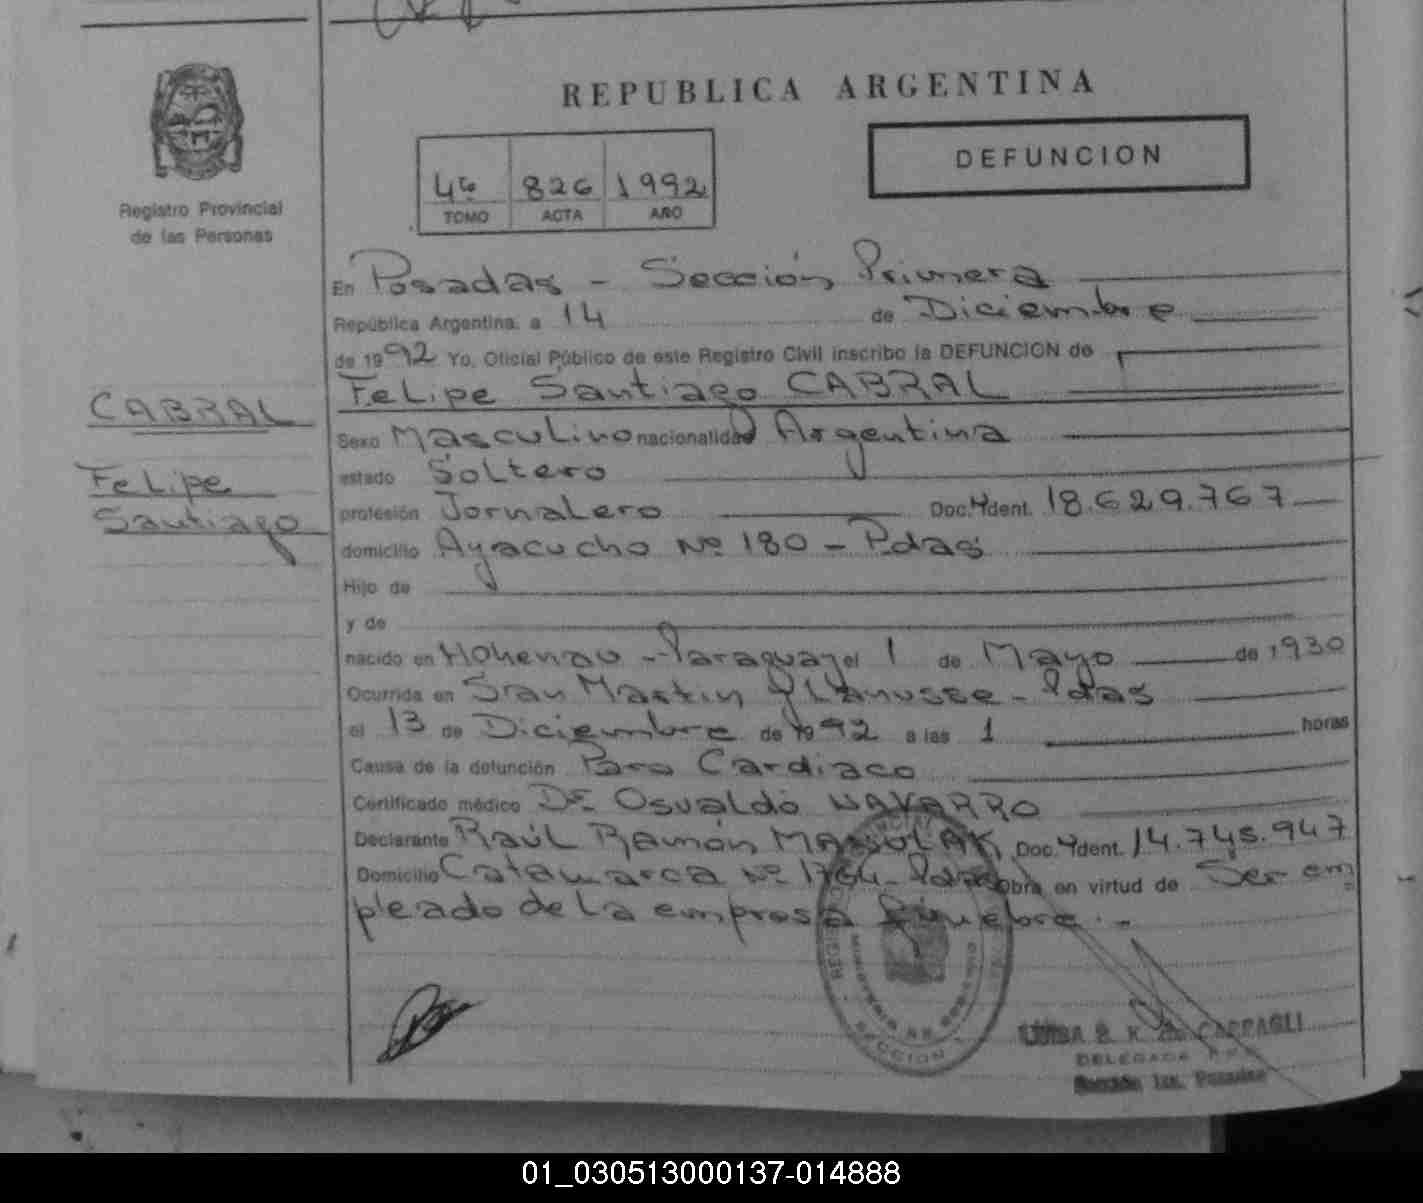 REPUBLICA ARGENTINA
DEFUNCION
4to 826 1992
TOMO ACTA AÑO
Registro Provincial
de las Personas
En Posadas - Sección Primera
República Argentina, a 14 de Diciembre
de 1992 Yo, Oficial Público de este Registro Civil inscribo la DEFUNCION de
Felipe Santiago CABRAL
CABRAL
Felipe
Santiago
Sexo Masculino nacionalidad Argentina
estado Soltero
profesión Jornalero Doc. Ydent. 18.629.767
domicilio Ayacucho Nº 180 - Pdas
Hijo de
y de
nacido en Hohenau - Paraguay el 1 de Mayo de 1930
Ocurrida en San Martin y Llanusse - Pdas
el 13 de Diciembre de 1992 a las 1 horas
Causa de la defunción Paro Cardiaco
Certificado médico Osvaldo NAVARRO
Declarante Raúl Ramón Doc. Ydent. 14.745.947
Domicilio Catamarca Nº 1764 - Pdas Obra en virtud de Ser em
pleado de la empresa fúnebre.-
SECCION 1
DELEGADA
01_030513000137-014888